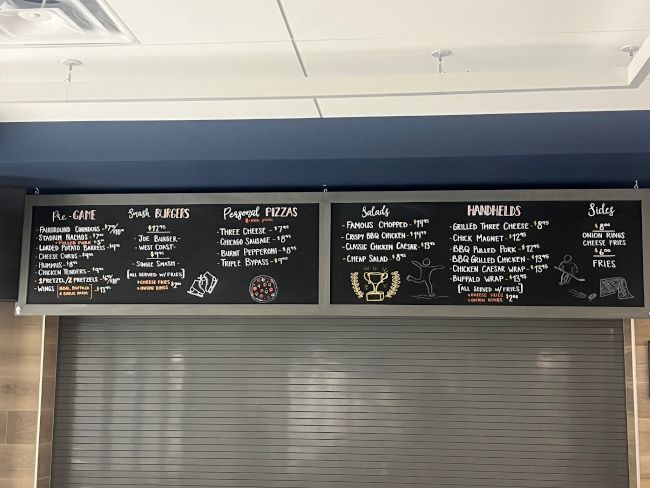 Pre-GAME
- FAIRGROUND CORNDOGS -
- STADIUM NACHOS -
+ PULLED PORK
- LOADED POTATO BARRELS -
- CHEESE CURDS -
- HUMMUS -
- CHICKEN TENDERS -
- 1 PRETZEL/2 PRETZELS -
- WINGS [BBQ, BUFFALO & GARLIC PARM] - $13.95
Smash BURGERS
$12.95
- JOE BURGER -
- WEST COAST -
- SINGLE SMASH -
[ALL SERVED w/FRIES]
+ CHEESE FRIES
+ ONION RINGS $2.00
Personal PIZZAS
- THREE CHEESE - $7.95
- CHICAGO SAUSAGE - $8.95
- BURNT PEPPERONI - $8.95
- TRIPLE BYPASS - $9.95
Salads
- FAMOUS CHOPPED - $14.95
- CRISPY BBQ CHICKEN - $14.95
- CLASSIC CHICKEN CAESAR - $13.95
- CHEAP SALAD - $8.95
HANDHELDS
- GRILLED THREE CHEESE - $8.95
- CHICK MAGNET - $12.95
- BBQ PULLED PORK - $12.95
- BBQ GRILLED CHICKEN - $13.95
- CHICKEN CAESAR WRAP - $13.95
- BUFFALO WRAP - $13.95
[ALL SERVED w/FRIES]
+ CHEESE FRIES
+ ONION RINGS $2.00
Sides
$8.00
ONION RINGS
CHEESE FRIES
$6.00
FRIES